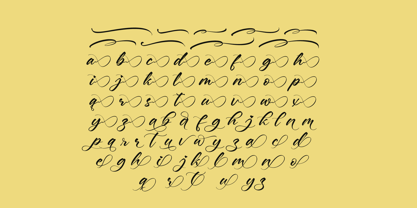 a b c d e f g h
i j k l m n o p
q r s t u v w x
y z a b d f g h j k l n m
p q r r t u v w y z a b c d
e g h i j k l m n o
q r t u y z